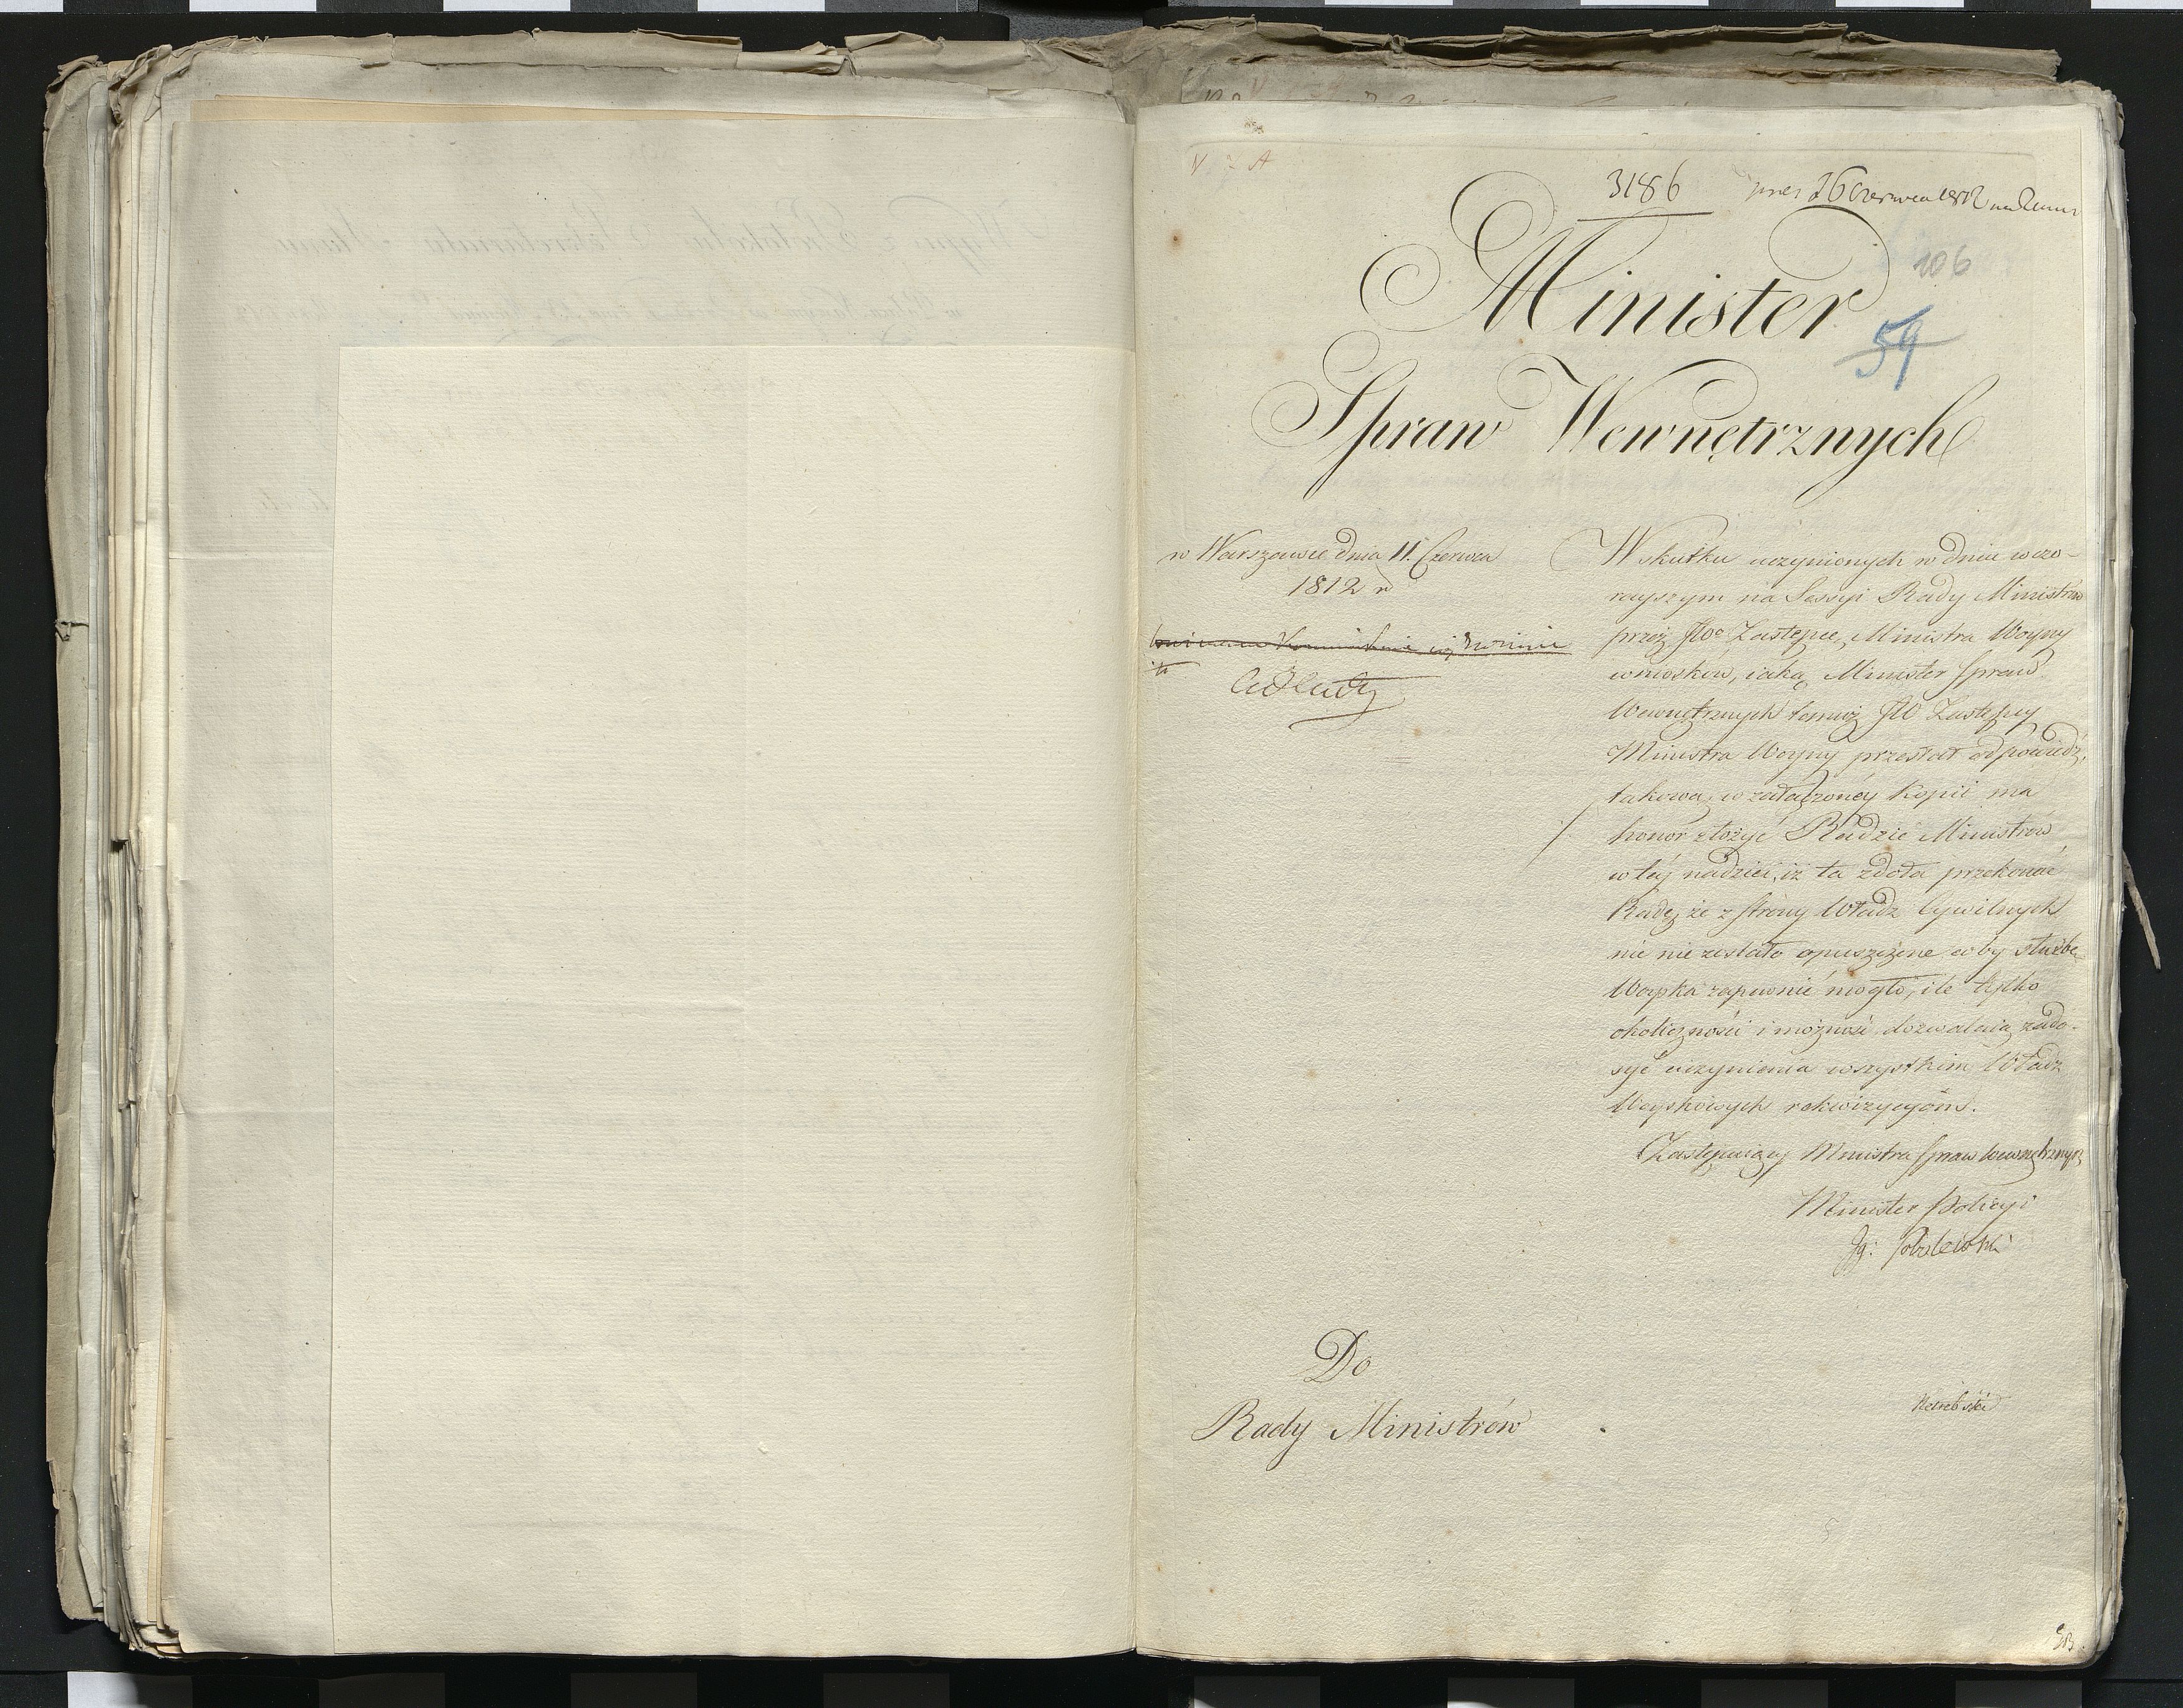 3186
26 Czerwca 1812
106
Minister
59
Spraw Wewnętrznych
w Warszawie dnia 11. Czerwca
1812 r
W skutku uczynionych w dniu wczo-
rayszym na Sessyi Rady Ministrów
przez JWo Zastępcę Ministra Woyny
wniosków, iaką Minister Spraw
Wewnętrznych temuż JW Zastępcy
Ministra Woyny przesłał odpowiedź,
takową w załączoney kopii ma
honor złożyć Radzie Ministrów
w téy nadziei, iż ta zdoła przekonać
Radę, że z strony Władz Cywilnych
nic nie zostało opuszczone coby służbę
Woyska zapewnić mogło, ile tylko
okoliczności i możność dozwalaią zado-
syć uczynienia wszystkim Władz
Woyskowych rekwizycyom.
Zastępuiący Ministra Spraw Wewnętrznych
Minister Policyi
Ig. Sobolewski
Do
Rady Ministrów